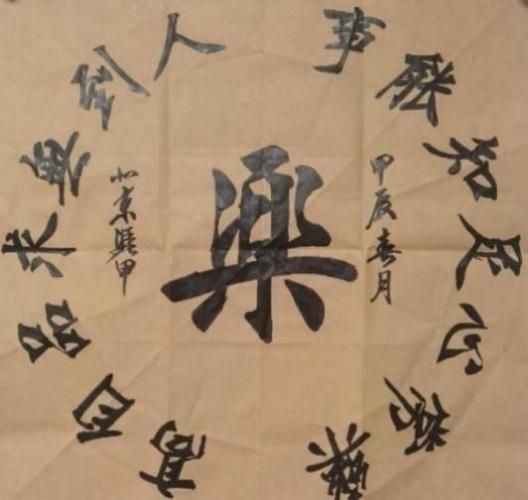 事能知足心常樂
人到無求品自高
樂
甲辰春月
京 甲